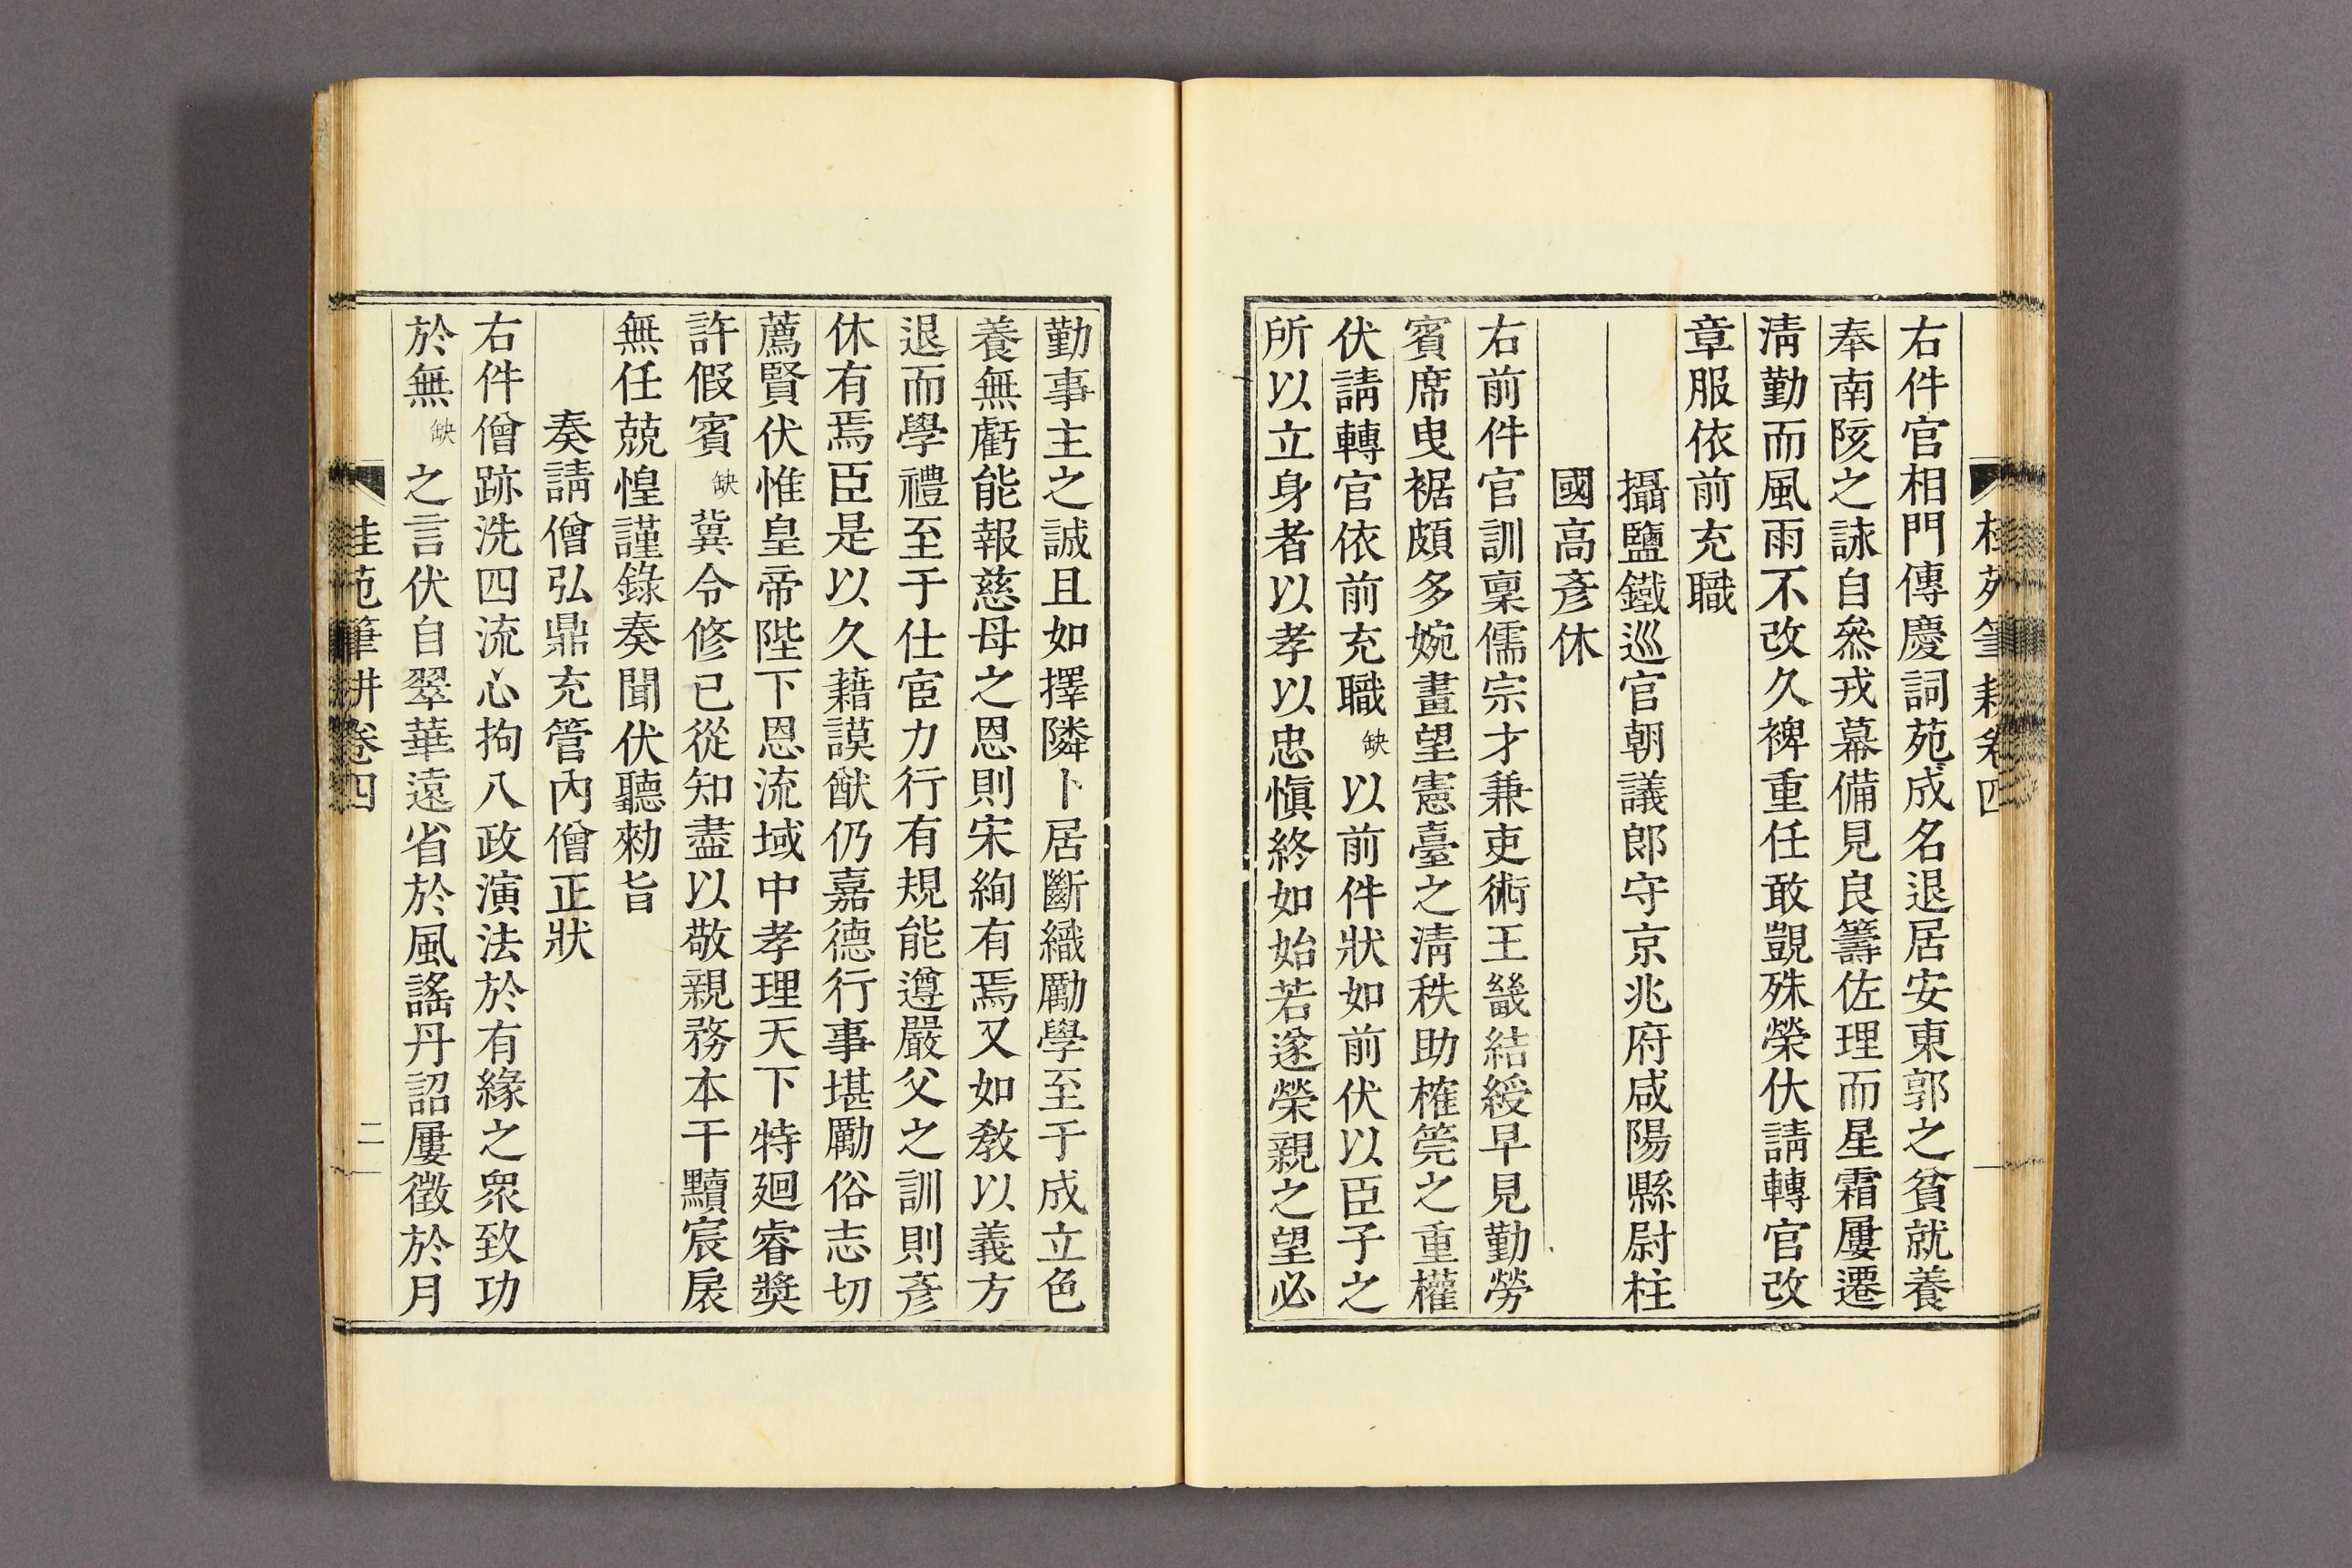 桂苑筆耕卷四
一
右件官相門傳慶詞苑成名退居安東郭之貧就養
奉南陔之詠自叅戎幕備見良籌佐理而星霜屢遷
淸勤而風雨不改久裨重任敢覬殊榮伏請轉官改
章服依前充職
攝鹽鐵巡官朝議郎守京兆府咸陽縣尉柱
國高彥休
右前件官訓稟儒宗才兼吏術王畿結綬早見勤勞
賓席曳裾頗多婉畫望憲臺之淸秩助榷筦之重權
伏請轉官依前充職缺以前件狀如前伏以臣子之
所以立身者以孝以忠愼終如始若遂榮親之望必
勤事主之誠且如擇隣卜居斷織勵學至于成立色
養無虧能報慈母之恩則宋絢有焉又如敎以義方
退而學禮至于仕宦力行有規能遵嚴父之訓則彥
休有焉臣是以久藉謨猷仍嘉德行事堪勵俗志切
薦賢伏惟皇帝陛下恩流域中孝理天下特廻睿獎
許假賓缺冀令修已從知盡以敬親務本干黷宸扆
無任兢惶謹錄奏聞伏聽勑旨
奏請僧弘鼎充管內僧正狀
右件僧跡洗四流心拘八政演法於有緣之衆致功
於無缺之言伏自翠華遠省於風謠丹詔屢徵於月
桂苑筆耕卷四
二